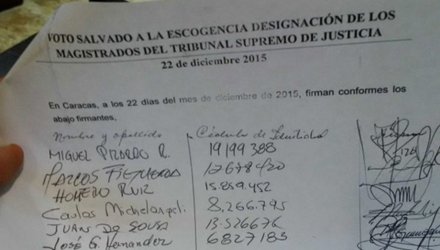 VOTO SALVADO A LA ESCOGENCIA DESIGNACIÓN DE LOS
MAGISTRADOS DEL TRIBUNAL SUPREMO DE JUSTICIA
22 de diciembre 2015
En Caracas, a los 22 días del mes de diciembre de 2015, firman conformes los
abajo firmantes.
Nombre y apellido Cédula de Identidad
MIGUEL PIZARRO R. 19199388
MARCOS FIGUEROA 12678420
HOMERO RUIZ 15.859.952
Carlos Michelangeli 8.266.795
JUAN DE SOUSA 13.526676
José G. Hernandez 6827185